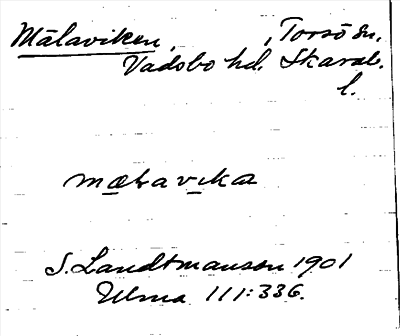 Mälaviken, , Torsö sn.
Vadsbo hd. Skarab.
l.
mælavika
S. Landtmanson 1901
Ulma 111:336.